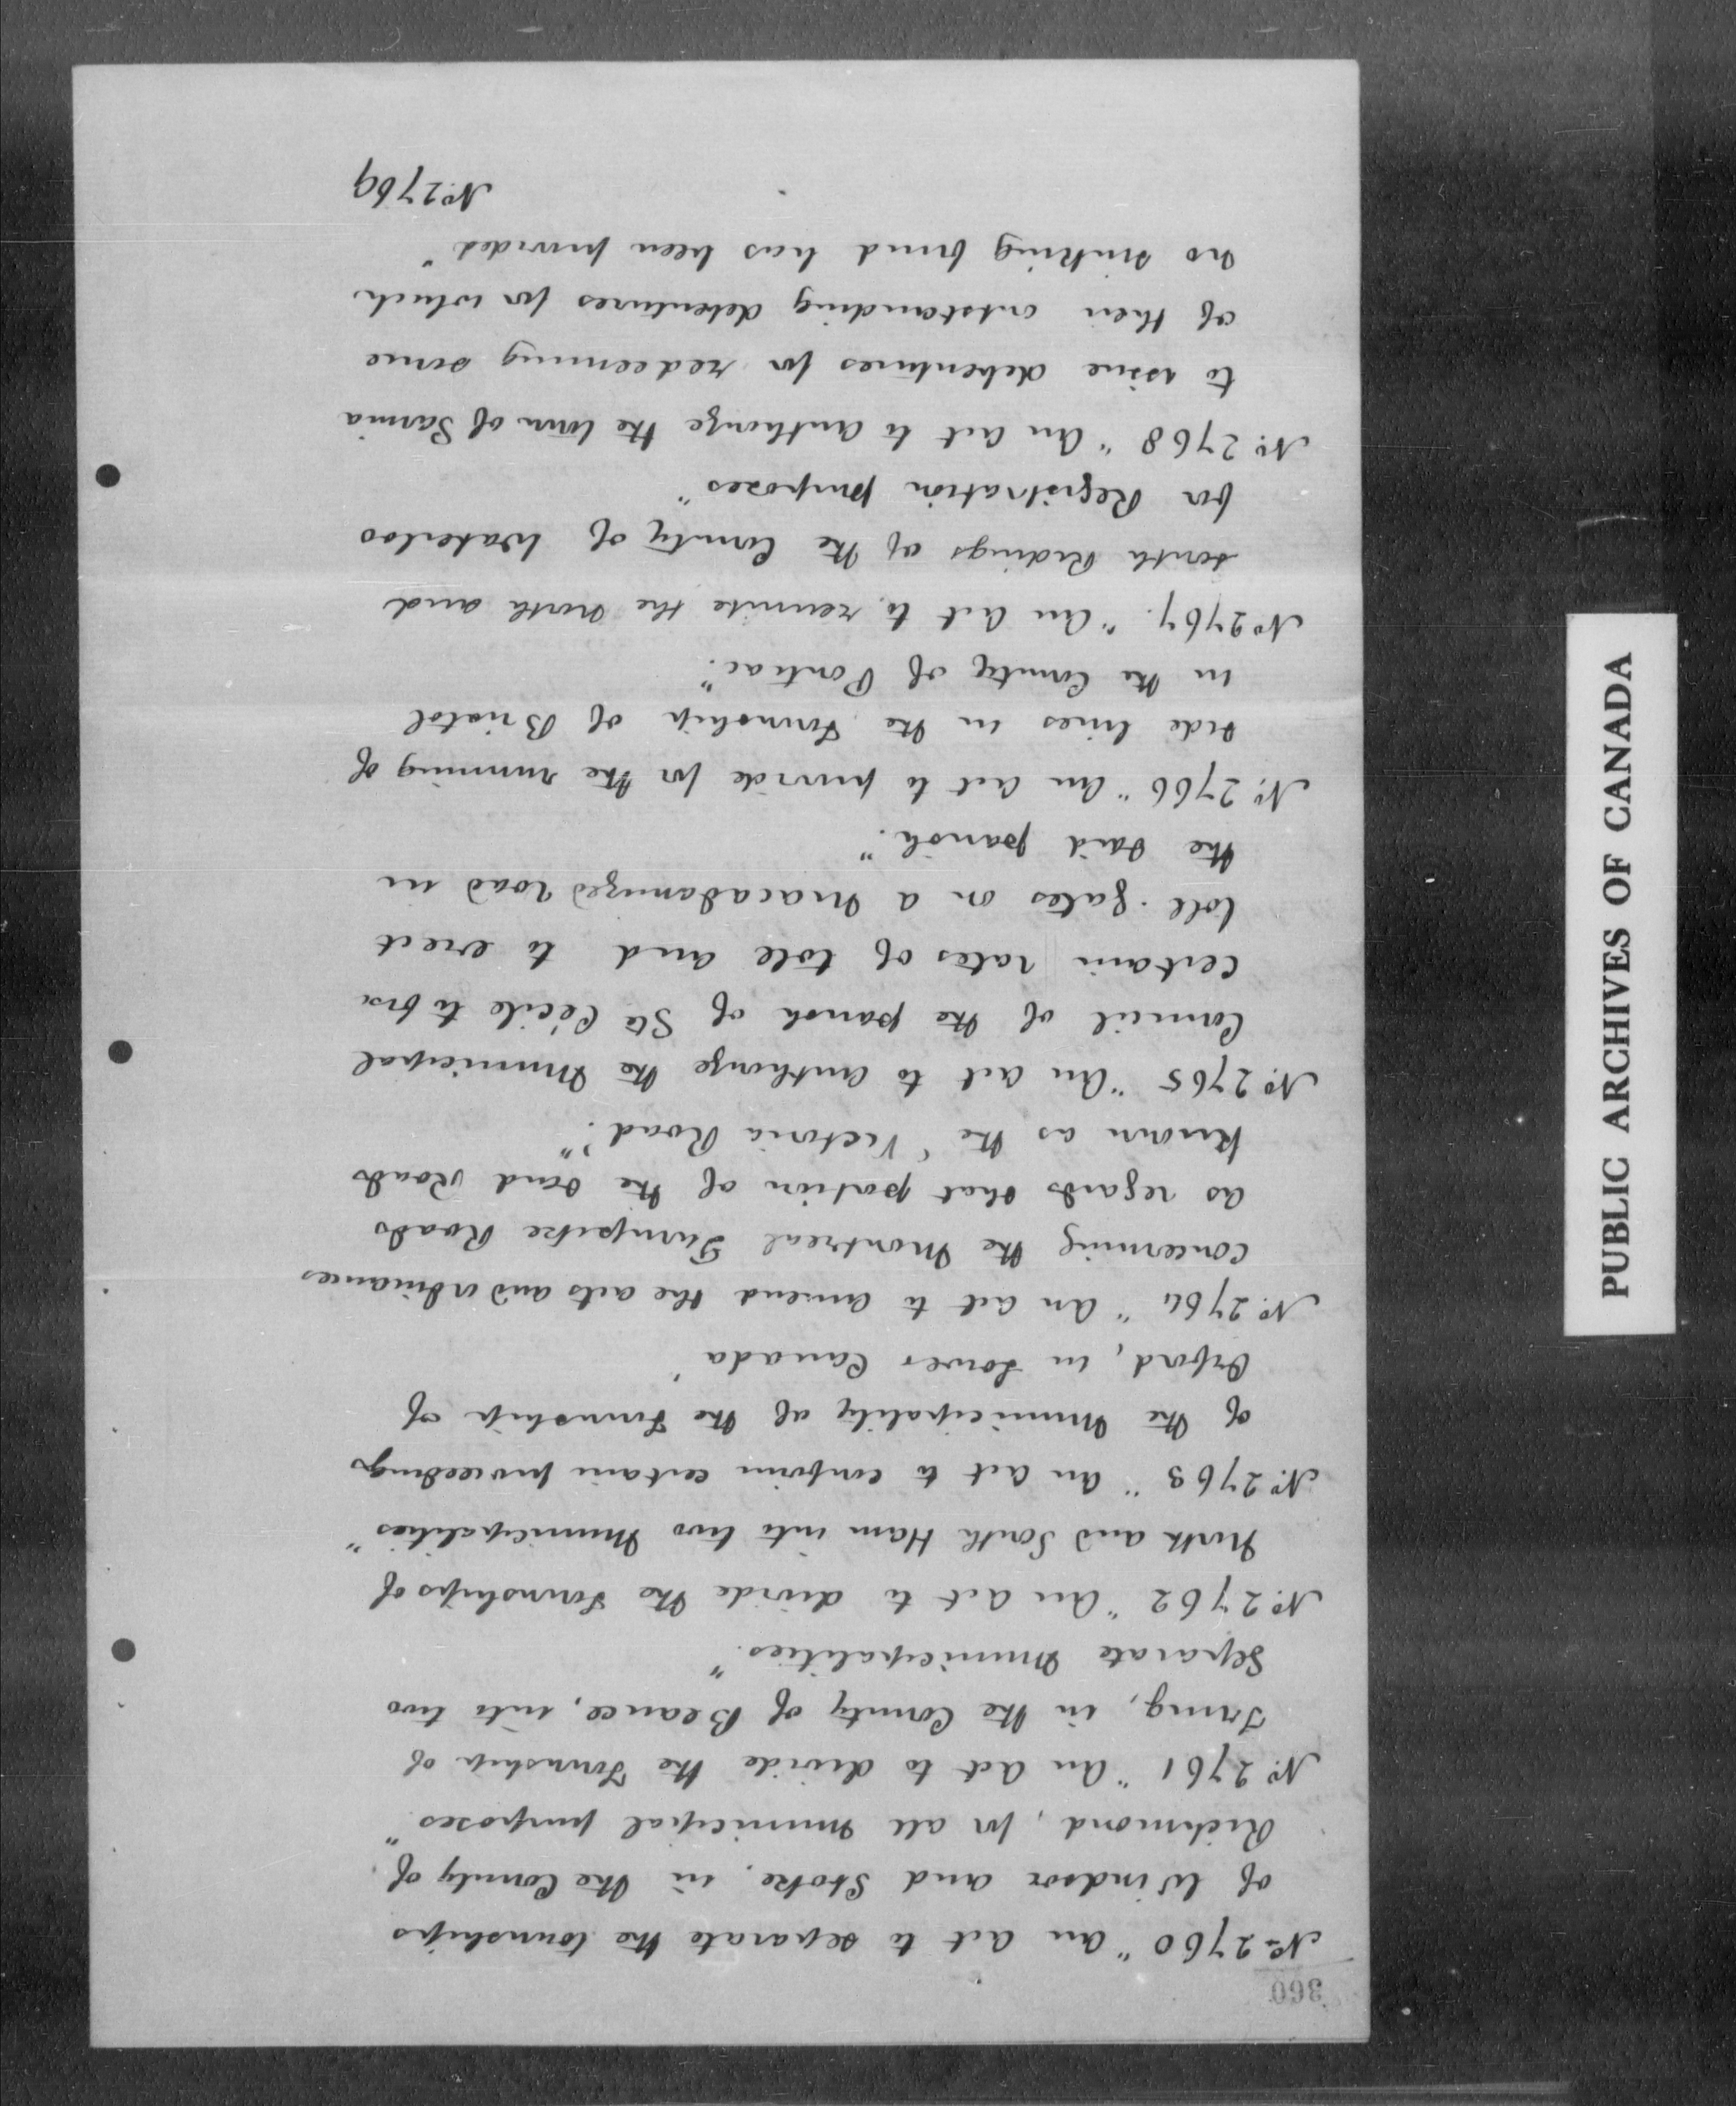 360
No 2760 "An Act to separate the townships
of Windsor and Stoke, in the County of
Richmond, for all municipal purposes"
No. 2761 "An Act to divide the Township of
Tring, in the County of Beauce, into two
Separate Municipalities."
No. 2762 "An Act to divide the Townships of
North and South Ham into two Municipalities"
No. 2763 "An Act to confirm certain proceedings
of the Municipality of the Township of
Orford, in Lower Canada"
No. 2764 "An Act to amend the acts and ordinances
concerning the Montreal Turnpike Roads
as regards that portion of the said Roads
known as the 'Victoria Road'."
No. 2765 "An Act to authorize the Municipal
Council of the parish of Ste Cécile to fix
certain rates of tole and to erect
tole-gates on a Macadamized road in
the said parish."
No. 2766 "An Act to provide for the running of
side lines in the Township of Bristol
in the County of Pontiac."
No 2767. "An Act to reunite the North and
South Ridings of the County of Waterloo
for Registration purposes"
No. 2768 "An Act to authorize the town of Sarnia
to issue debentures for redeeming some
of their outstanding debentures for which
no sinking fund has been provided"
No. 2769
PUBLIC ARCHIVES OF CANADA